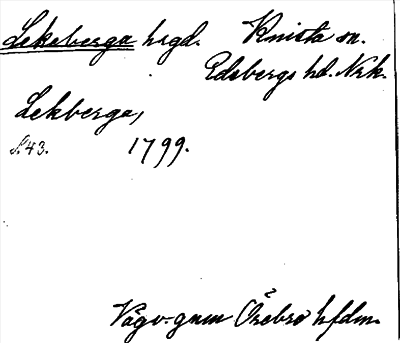 Lekeberga hrgd. Knista sn.
Edsbergs hd. Nrk.
Lekberga,
S.43. 1799.
Vägv. gnm Örebro hfdm.